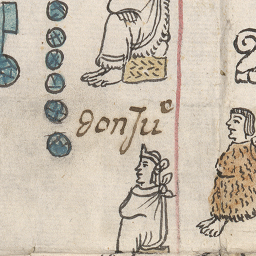 don Juº